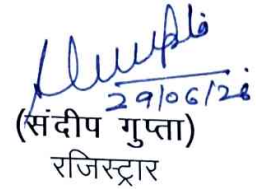 29/06/26
(संदीप गुप्ता)
रजिस्ट्रार